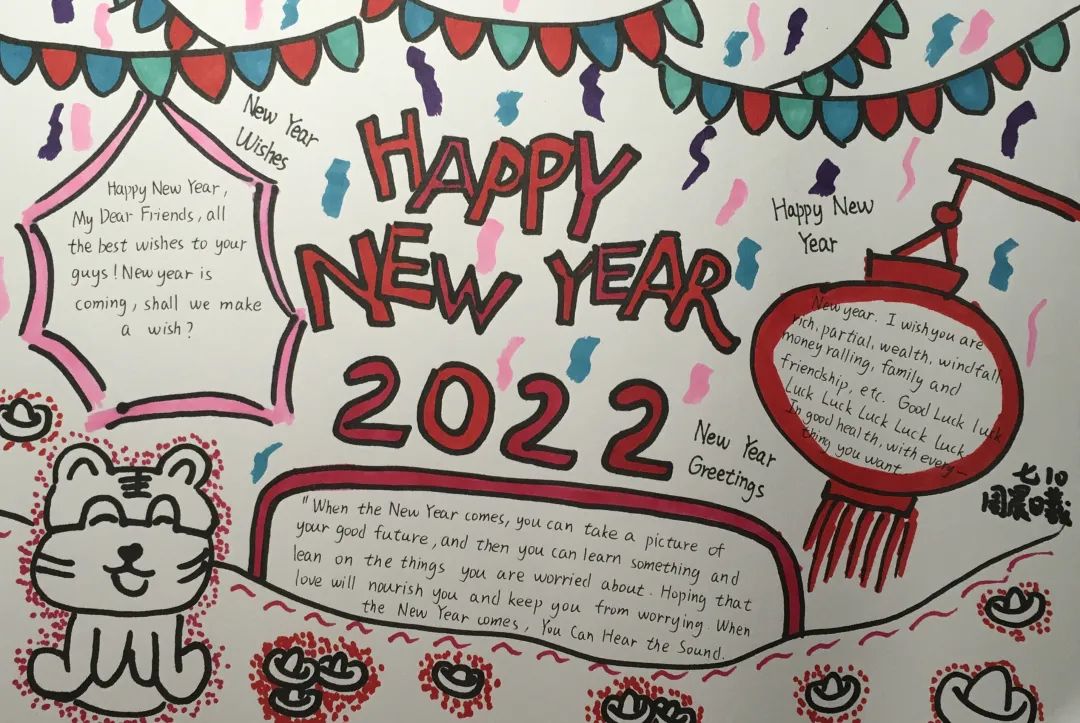 New Year
Wishes
Happy New Year,
My Dear Friends, all
the best wishes to your
guys! New year is
coming, shall we make
a wish?
HAPPY
NEW YEAR
2022
Happy New
Year
New year. I wish you are
rich, partial, wealth, windfall
money ralling, family and
friendship, etc. Good Luck luck
Luck Luck Luck Luck Luck
In good health, with every-
thing you want
New Year
Greetings
"When the New Year comes, you can take a picture of
your good future, and then you can learn something and
lean on the things you are worried about. Hoping that
love will nourish you and keep you from worrying. When
the New Year comes, You Can Hear the Sound.
七10
周晨曦